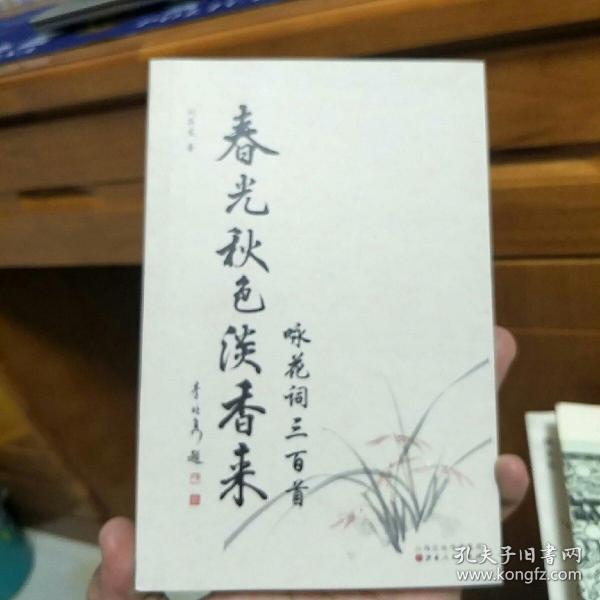 春光秋色淡香来
咏花词三百首
著
题
孔夫子旧书网
www.kongfz.com